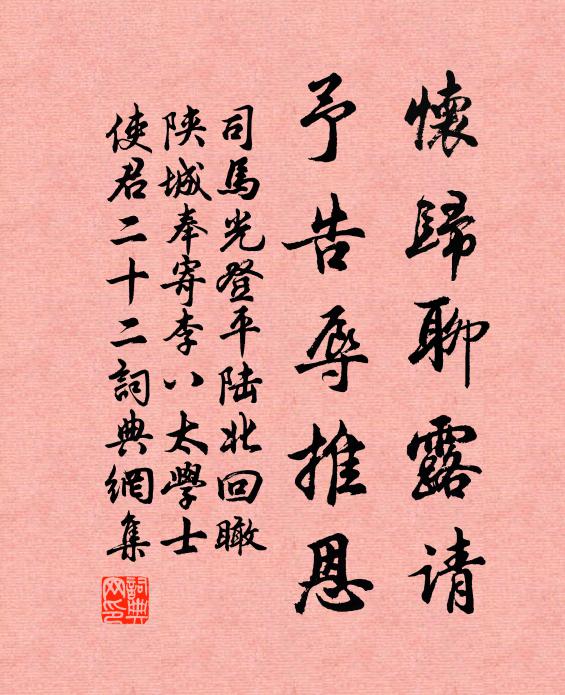 懷歸聊露请
予告辱推恩
司馬光登平陆北回瞰
陝城奉寄李八太學士
使君二十二詞典網集
詞典网印